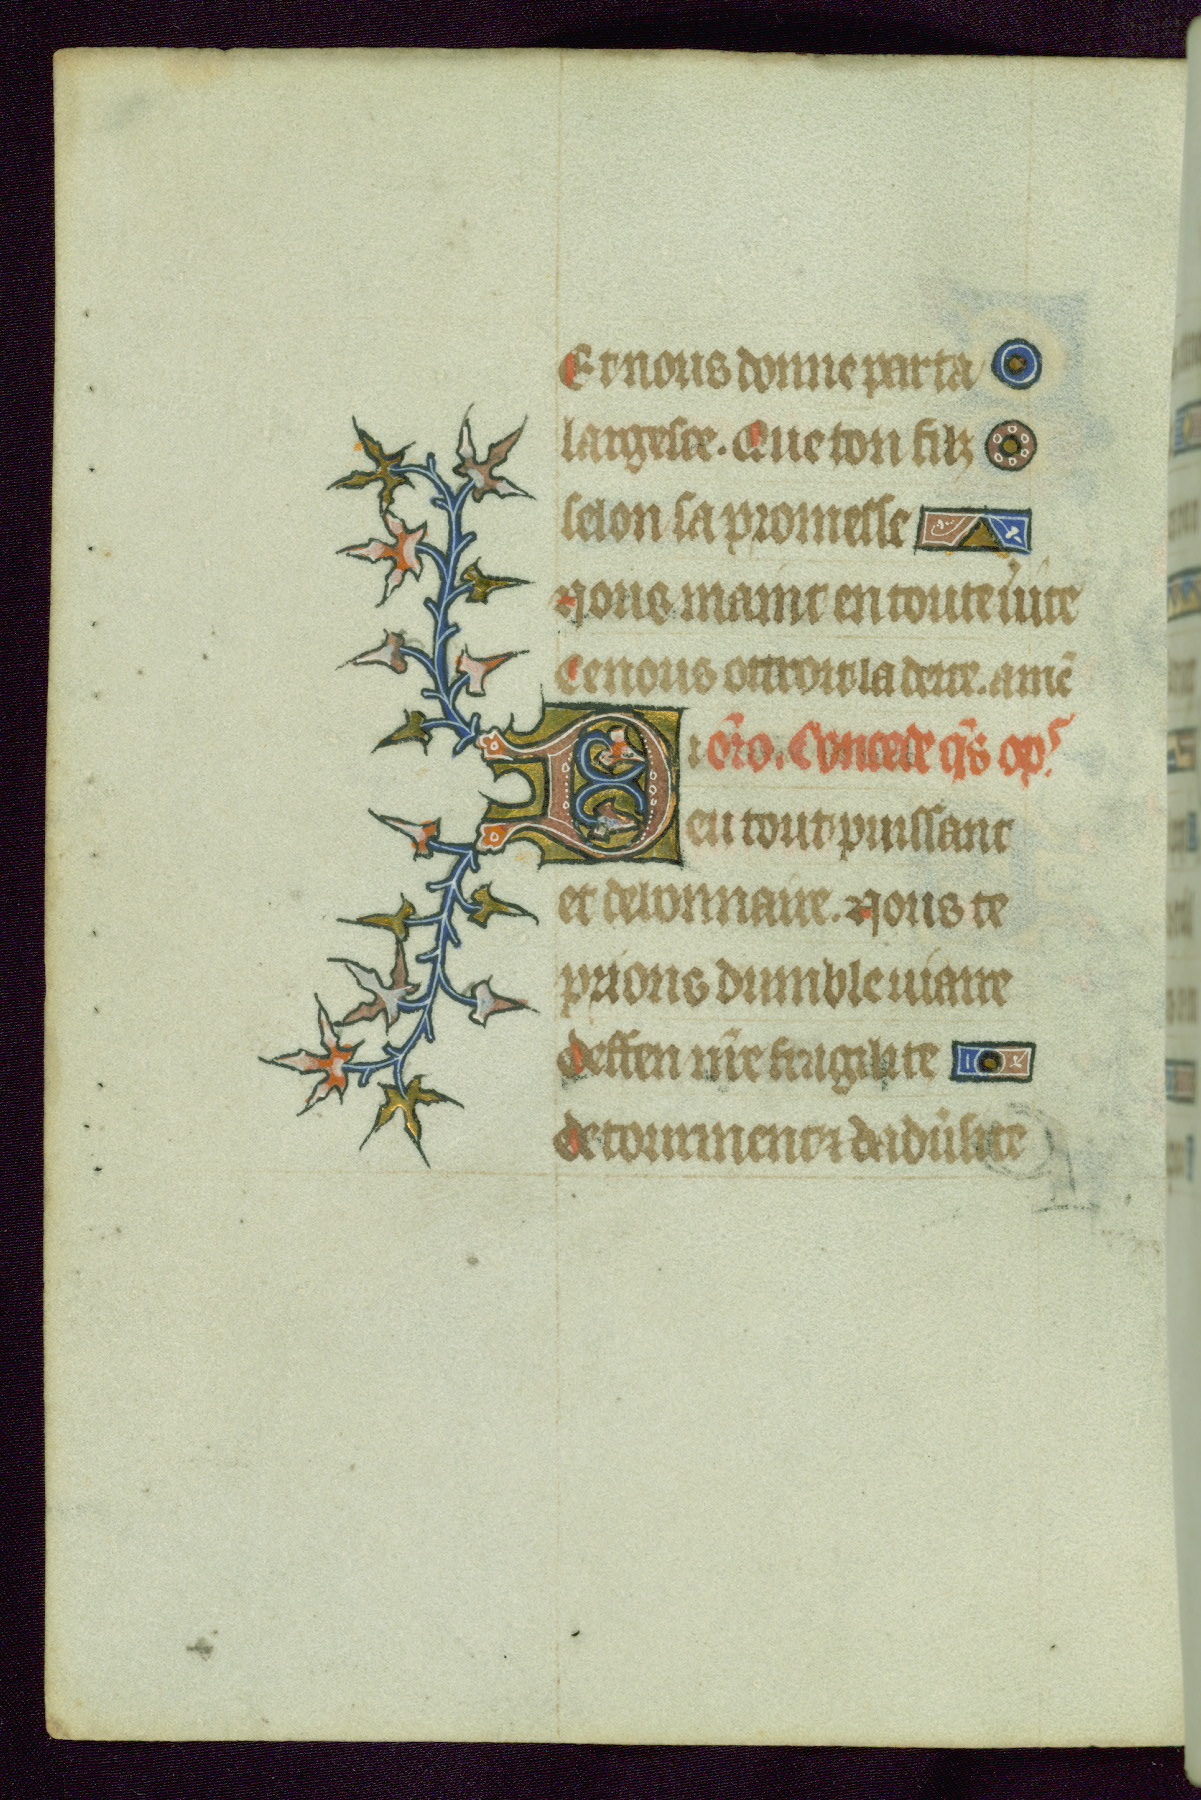 Et nous donne par ta
largesce. Que ton filz
selon sa promesse
Nous maint en toute uu̇te
Ce nous ottroit la deite. amē
or̄o. Concede q̄s op̄s
Deu tout puissant
et debonnaire. Nous te
prions dumble uiaire
deffen nr̄e fragilite
de tourment